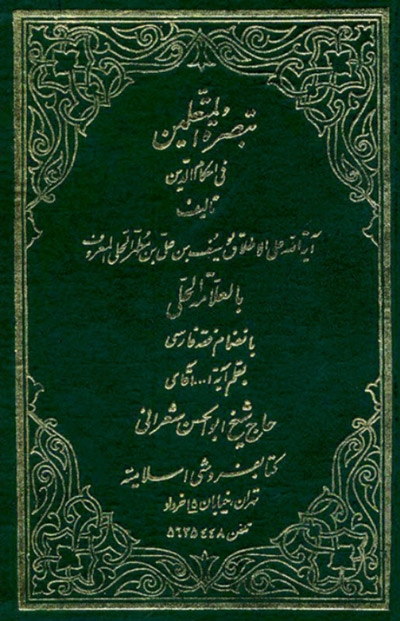 تبصرة المتعلمین
فی احکام الدین
تألیف
آیة الله علی الاطلاق یوسف بن علی بن مطهر الحلی المعروف
بالعلامة الحلی
با نضمام فقه فارسی
بقلم آیة ا... آقای
حاج شیخ ابوالحسن شعرانی
کتابفروشی اسلامیه
تهران، خیابان ۱۵ خرداد
تلفن ۵۶۳۵۴۴۸